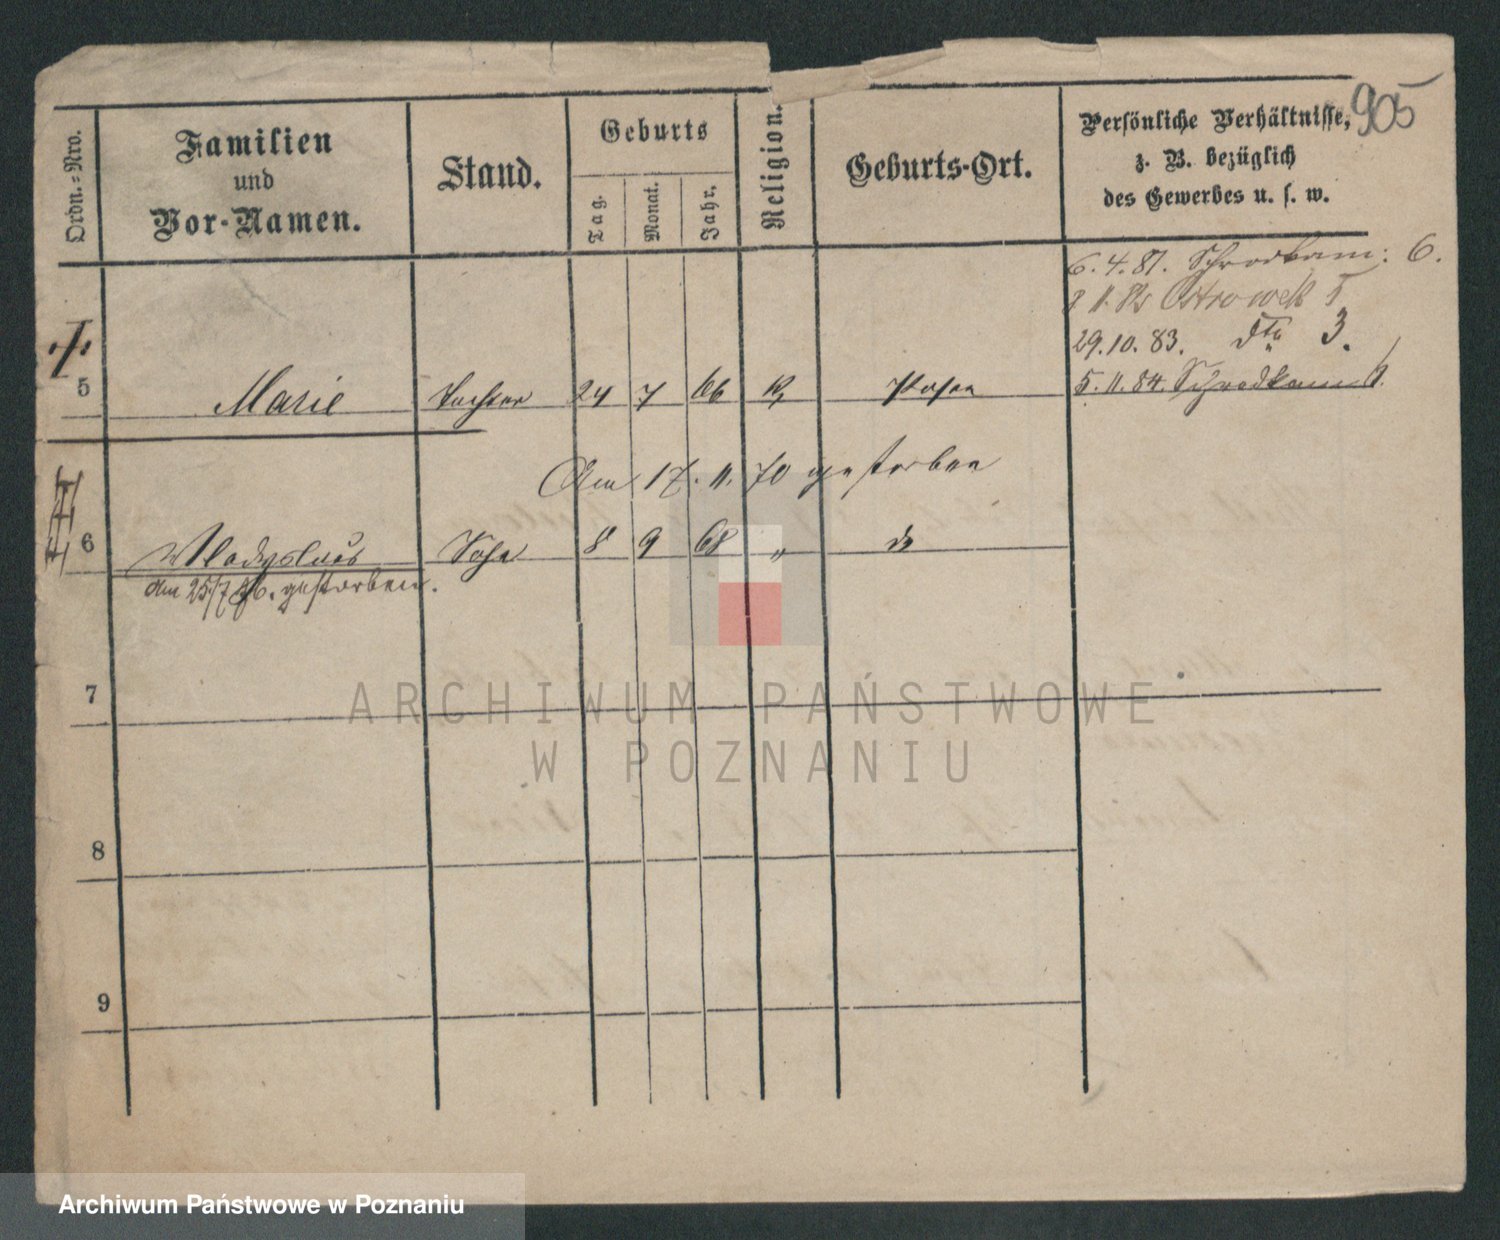 905
Ordn.-Nro.
Familien
und
Vor-Namen.
Stand.
Geburts
Tag.
Monat.
Jahr.
Religion.
Geburts-Ort.
Persönliche Verhältnisse,
z. B. bezüglich
des Gewerbes u. s. w.
6. 4. 81. Schrodkam: 6.
8. 11. 82 Ostrowek 5
29. 10. 83. dto 3.
5. 11. 84. Schrodkam
5 Marie Tochter 24 7 66 K Posen
Am 17. 11. 70 gestorben
6 Wladyslaus Sohn 8 9 68 " do
am 25/7 86. gestorben.
7
8
9
ARCHIWUM PAŃSTWOWE
W POZNANIU
Archiwum Państwowe w Poznaniu